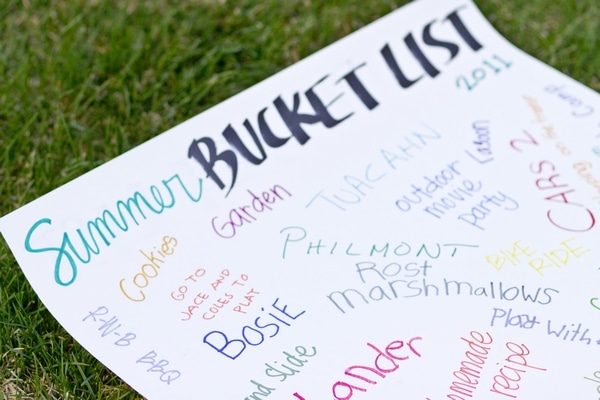 Summer BUCKET LIST
2011
Camp
Garden
TUACAHN
outdoor
movie
party
Lagoon
CARS 2
Cookies
GO TO
JACE AND
COLES TO
PLAY
PHILMONT
BIKE
RIDE
Rost
marshmallows
R-N-B
BBQ
BOSIE
Play With
slide
lander
homemade
recipe